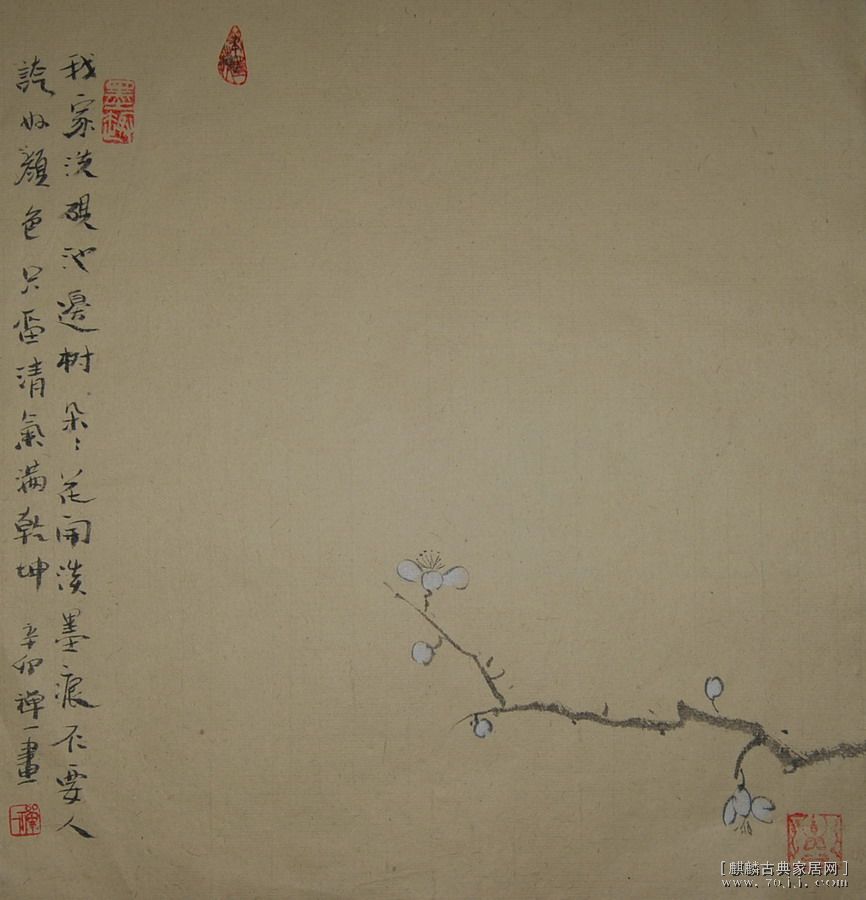 我家洗硯池邊树朵々花開淡墨痕不要人
誇好顔色只留清氣滿乾坤 辛卯禪一畫
[麒麟古典家居网]
www.7qjj.com